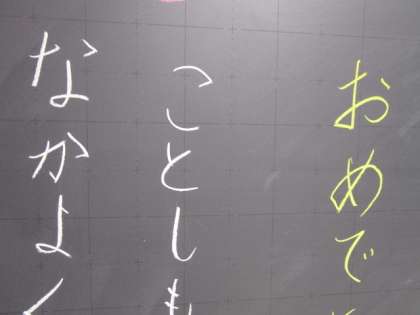 おめで
ことしも
なかよく